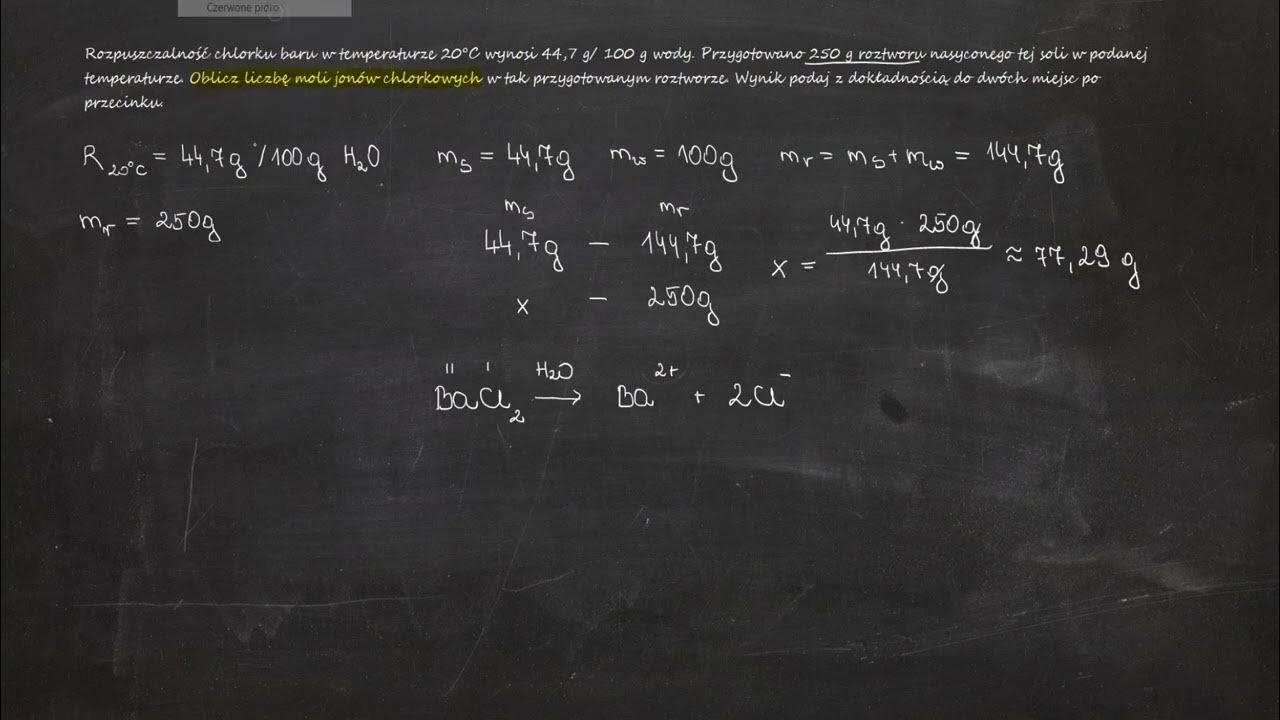 Czerwone pióro
Rozpuszczalność chlorku baru w temperaturze 20°C wynosi 44,7 g/ 100 g wody. Przygotowano 250 g roztworu nasyconego tej soli w podanej
temperaturze. Oblicz liczbę moli jonów chlorkowych w tak przygotowanym roztworze. Wynik podaj z dokładnością do dwóch miejsc po
przecinku.
R20°C = 44,7g /100g H2O ms = 44,7g mw = 100g mr = ms + mw = 144,7g
mr = 250g
ms mr
44,7g — 144,7g
x — 250g
x = 44,7g · 250g / 144,7g ≈ 77,29 g
II I
BaCl2 H2O → Ba2+ + 2Cl-